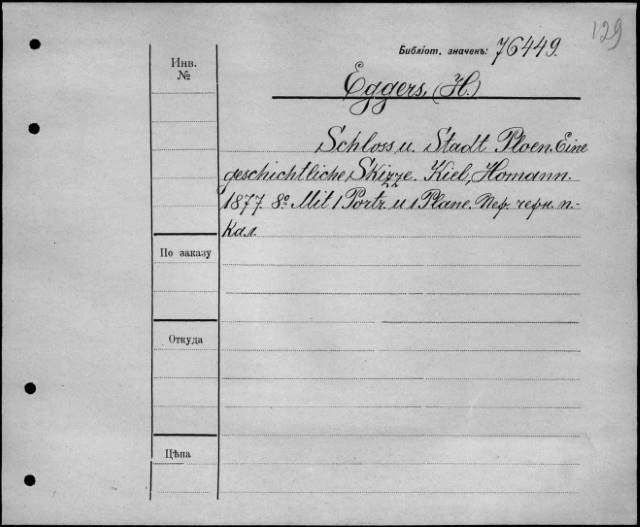 129
Библіот. значенъ: 76449.
Инв.
№
Eggers, (H.)
Schloss u. Stadt Ploen. Eine
geschichtliche Skizze. Kiel, Homann.
1877. 8º. Mit 1 Portr. u 1 Plane. Пер. черн. п-
кал.
По заказу
Откуда
Цѣна